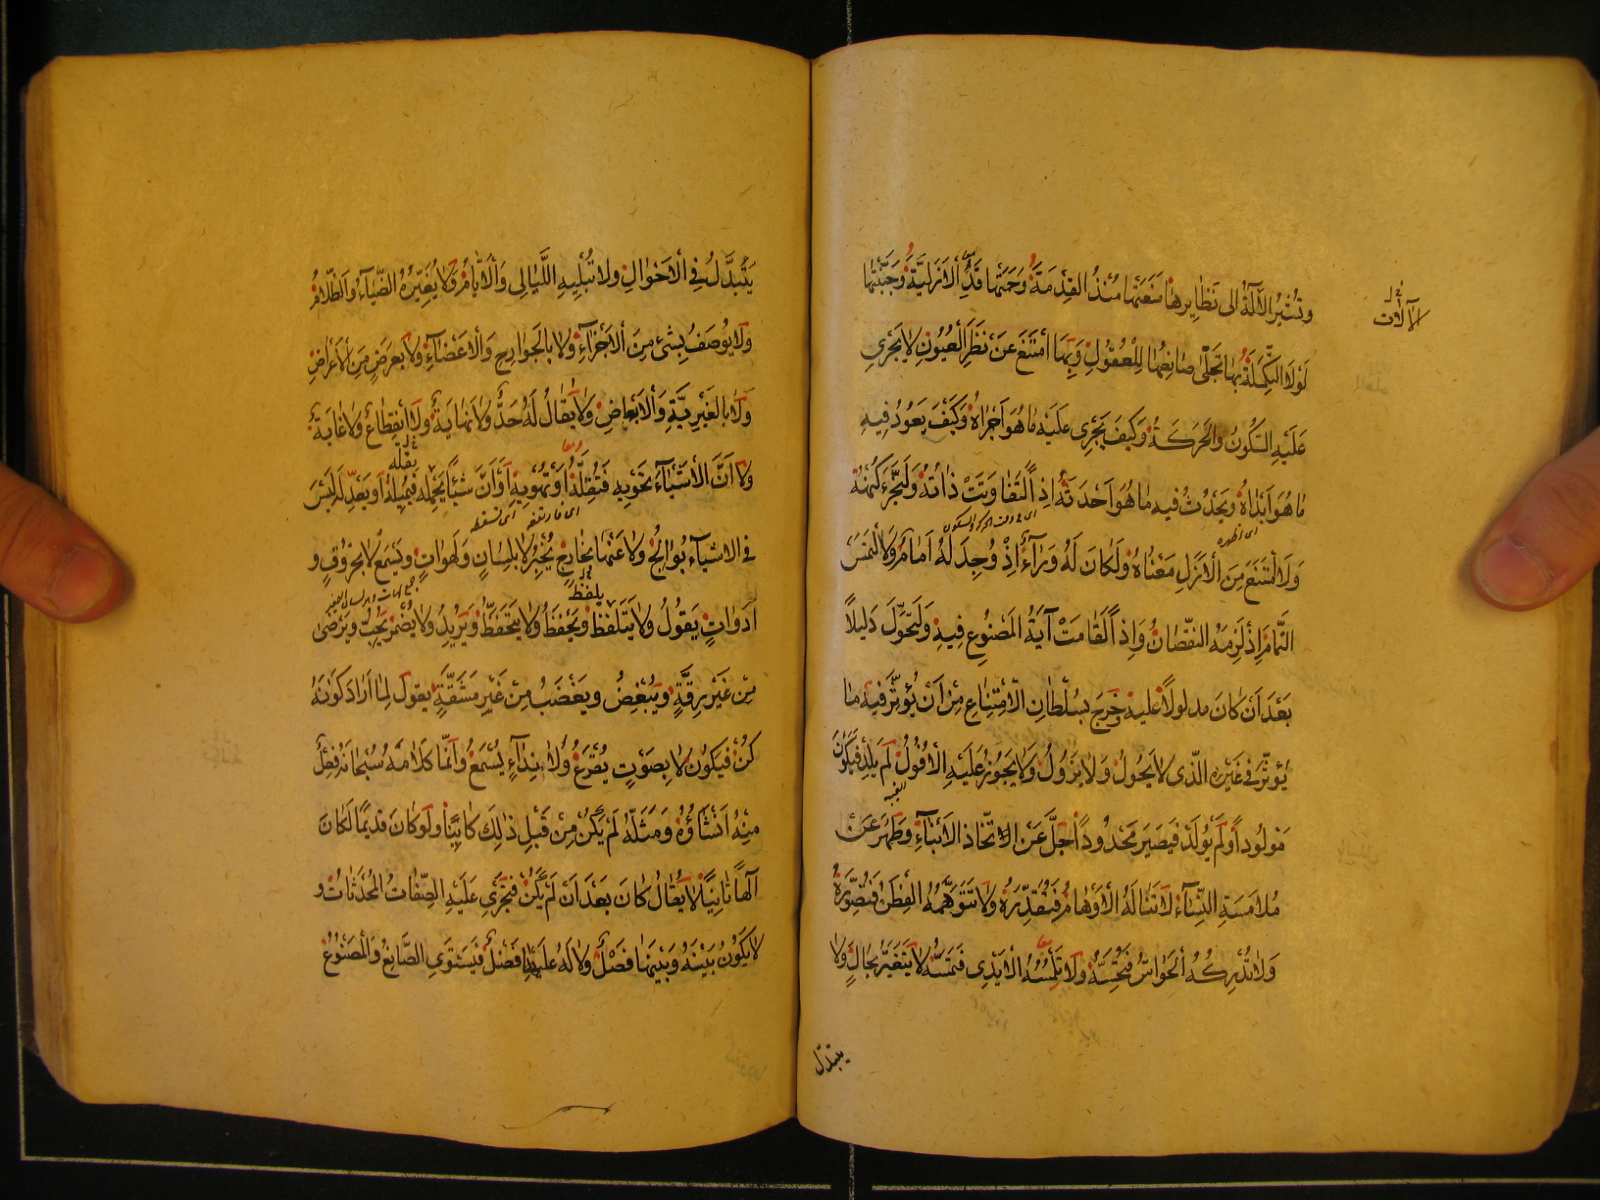 وتشير الآلة الى نظايرها منعتها منذ القدمة وحمتها قد الازلية وجنبتها
الآلات
لولا التكملة بها تجلى صانعها للعقول وبها امتنع عن نظر العيون لا يجري
عليه السكون والحركة وكيف يجري عليه ما هو اجراه وكيف يعود فيه
ما هو ابداه ويحدث فيه ما هو احدثه اذا لتفاوتت ذاته ولتجزء كنهه
ولا امتنع من الازل معناه ولكان له وراء اذ وجد له امام ولا التمس
التمام اذ لزمه النقصان واذا لقامت آية المصنوع فيه ولتحول دليلا
بعد ان كان مدلولا عليه وخرج بسلطان الامتناع من ان يؤثر فيه ما
يؤثر في غيره الذي لا يحول ولا يزول ولا يجوز عليه الافول لم يلد فيكون
مولودا ولم يولد فيصير محدودا جل عن الاتخاذ الابناء وطهر عن
ملامسة النساء لا تناله الاوهام فتقدره ولا تتوهمه الفطن فتصوره
ولا تدركه الحواس فتحسه ولا تلمسه الايدي فتمسه لا يتغير بحال ولا
يتبدل
يتبدل في الاحوال ولا تبليه الليالي والايام ولا يغيره الضياء والظلام
ولا يوصف بشيء من الاجزاء ولا بالجوارح والاعضاء ولا بعرض من الاعراض
ولا بالغيرية والابعاض ولا يقال له حد ولا نهاية ولا انقطاع ولا غاية
ولا ان الاشياء تحويه فتقله او تهويه او ان شيئا يحمله فيميله او يعدله ليس
في الاشياء بوالج ولا عنها بخارج يخبر لا بلسان ولهوات ويسمع لا بخروق و
يلفظ
ادوات يقول ولا يتلفظ ويحفظ ولا يتحفظ ويريد ولا يضمر يحب ويرضى
من غير رقة ويبغض ويغضب من غير مشقة يقول لما اراد كونه
كن فيكون لا بصوت يقرع ولا نداء يسمع وانما كلامه سبحانه فعل
منه انشاؤه ومثله لم يكن من قبل ذلك كاينا ولو كان قديما لكان
آلها ثانيا لا يقال كان بعد ان لم يكن فتجري عليه الصفات المحدثات و
لا يكون بينه وبينها فصل ولا له عليها فضل فيستوي الصانع والمصنوع